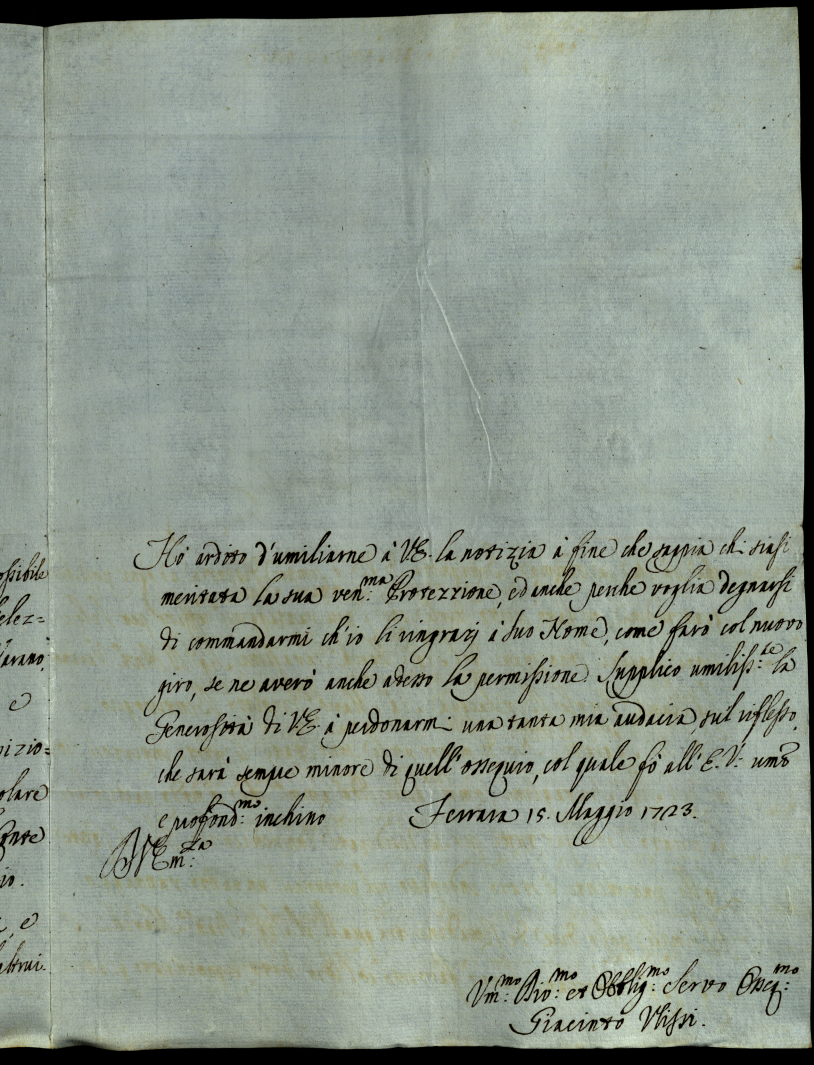 ossibile
elez=
Varano,
e
nizio=
olare
onte
io.
, e
altrui.
Hò ardito d'umiliarne à VE. la notizia à fine che sappia chi siasi
meritata la sua ven:ma Protezzione, ed anche perche voglia degnarsi
di commandarmi ch'io li ringrazj à suo Nome, come farò col nuovo
giro, se ne averò anche adesso la permissione. Supplico umiliss:te la
Generosità di VE. à perdonarmi una tanta mia audacia, sul riflesso,
che sarà sempre minore di quell'ossequio, col quale fò all'E.V. umo
e profond:mo inchino Ferrara 15. Maggio 1723.
Di V Em:za
Um:mo Div:mo et Obblig:mo Servo Osseq:mo
Giacinto Ulissi.